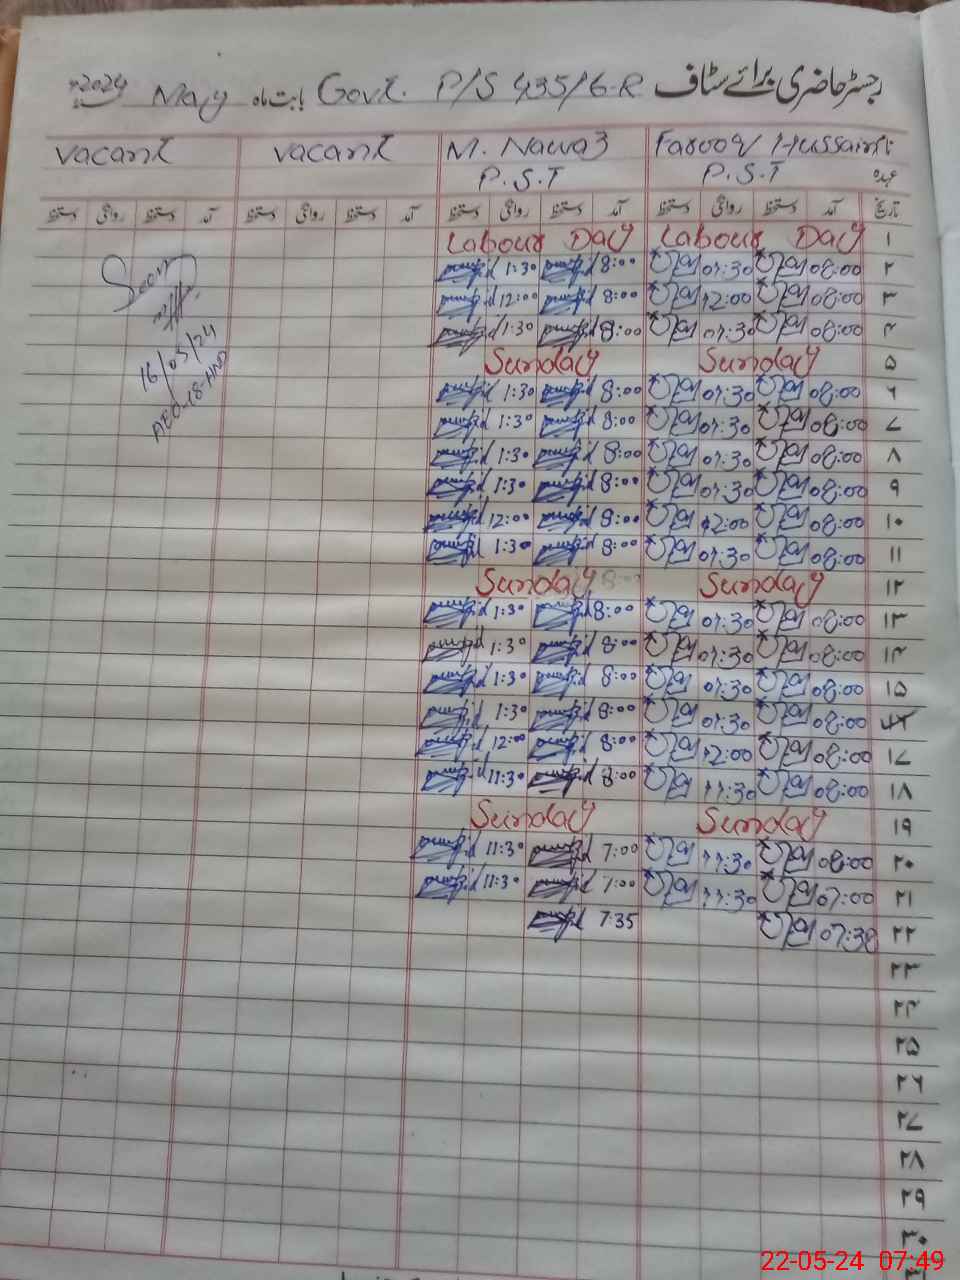 رجسٹر حاضری برائے سٹاف Govt. P/S 435/6-R بابت ماہ May 2024
Farooq Hussain M. Nawaz vacant vacant
عہدہ P.S.T P.S.T
تاریخ آمد دستخط روانگی دستخط آمد دستخط روانگی دستخط آمد دستخط روانگی دستخط آمد دستخط روانگی دستخط
۱ Labour Day Labour Day
۲ 08:00 01:30 8:00 1:30
۳ 08:00 12:00 8:00 12:00
۴ 08:00 01:30 8:00 1:30
۵ Sunday Sunday
۶ 08:00 01:30 8:00 1:30
۷ 08:00 01:30 8:00 1:30
۸ 08:00 01:30 8:00 1:30
۹ 08:00 01:30 8:00 1:30
۱۰ 08:00 12:00 8:00 12:00
۱۱ 08:00 01:30 8:00 1:30
۱۲ Sunday Sunday
۱۳ 08:00 01:30 8:00 1:30
۱۴ 08:00 01:30 8:00 1:30
۱۵ 08:00 01:30 8:00 1:30
۱۶ 08:00 01:30 8:00 1:30
۱۷ 08:00 12:00 8:00 12:00
۱۸ 08:00 11:30 8:00 11:30
۱۹ Sunday Sunday
۲۰ 08:00 11:30 7:00 11:30
۲۱ 07:00 11:30 7:00 11:30
۲۲ 07:38 7:35
۲۳
۲۴
۲۵
۲۶
۲۷
۲۸
۲۹
۳۰
Seen
16/05/24
AEO-18-HND
22-05-24 07:49